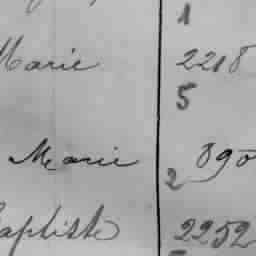 1
Marie 2218
5
Marie 2 890
Baptiste 2252